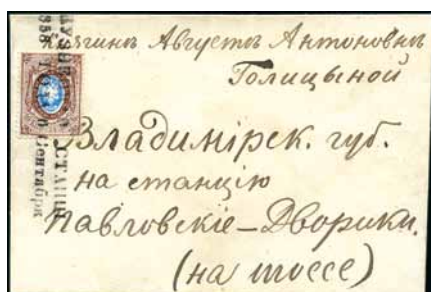 Княгинѣ Августѣ Антоновнѣ
Голицыной
Владимірск. губ.
на станцію
Павловскіе–Дворики.
(на шоссе)
СТАНЦІ
Сентября